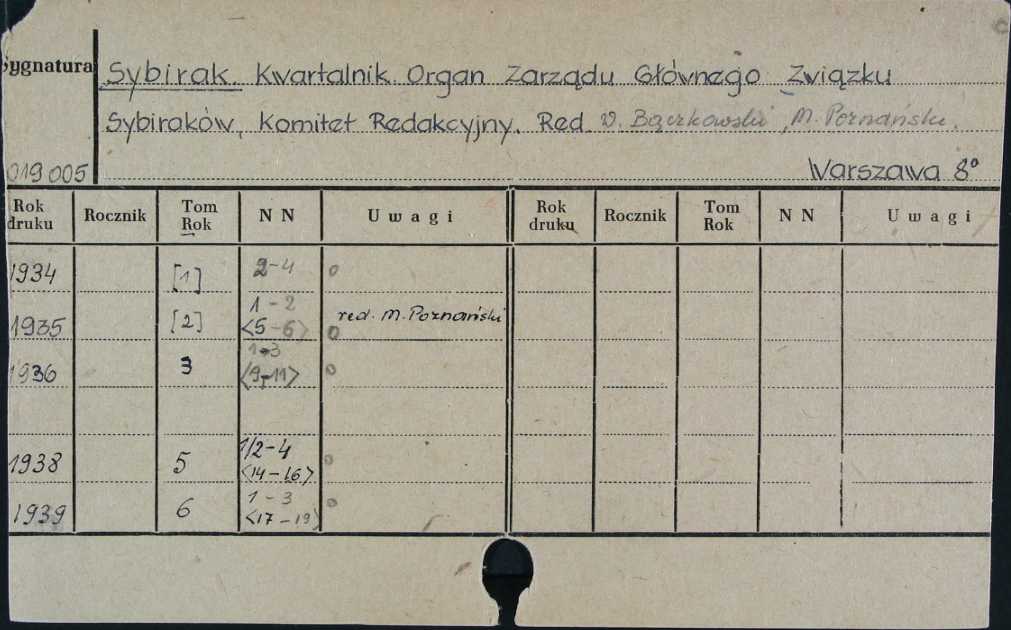 Sygnatura
Sybirak. Kwartalnik. Organ Zarządu Głównego Związku
Sybiraków, Komitet Redakcyjny. Red. W. Bączkowski, M. Poznański.
019 005 Warszawa 8°
Rok druku Rocznik Tom Rok NN Uwagi Rok druku Rocznik Tom Rok NN Uwagi
1934 [1] 2-4 o
1935 [2] 1-2 <5-6> red. M. Poznański o
1936 3 1-3 <9-11> o
1938 5 1/2-4 <14-16> o
1939 6 1-3 <17-19> o